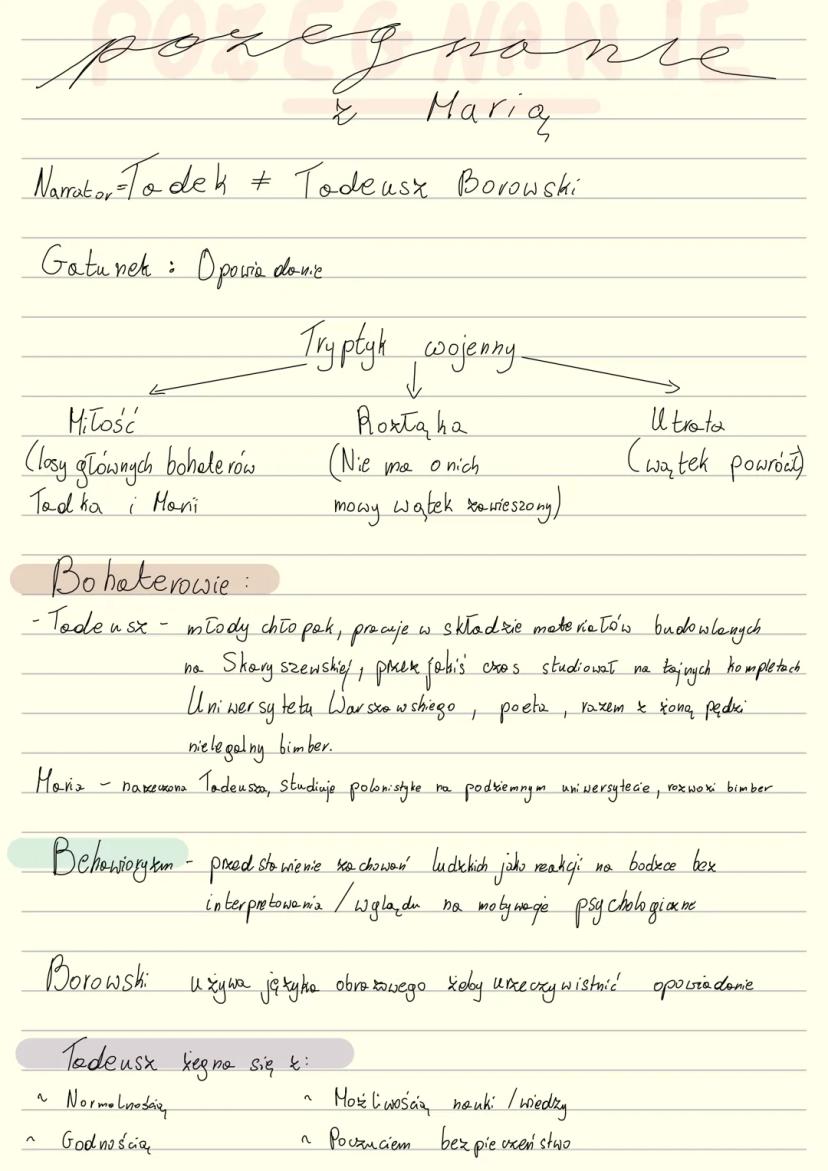 POŻEGNANIE
pożegnanie
z Marią
Narrator=Tadek ≠ Tadeusz Borowski
Gatunek : Opowiadanie
Tryptyk wojenny
Miłość Rozłąka Utrata
(losy głównych bohaterów (Nie ma o nich (wątek powrócił)
Tadka i Marii mowy wątek zawieszony)
Bohaterowie :
- Tadeusz - młody chłopak, pracuje w składzie materiałów budowlanych
na Skaryszewskiej, przez jakiś czas studiował na tajnych kompletach
Uniwersytetu Warszawskiego, poeta, razem z żoną pędzi
nielegalny bimber.
Maria - narzeczona Tadeusza, studiuje polonistyke na podziemnym uniwersytecie, rozwozi bimber
Behawioryzm - przedstawienie zachowań ludzkich jako reakcji na bodźce bez
interpretowania / wglądu na motywacje psychologiczne
Borowski używa języka obrazowego żeby urzeczywistnić opowiadanie
Tadeusz żegna się z:
~ Normalnością ~ Możliwością nauki / wiedzy
~ Godnością ~ Poczuciem bezpieczeństwo